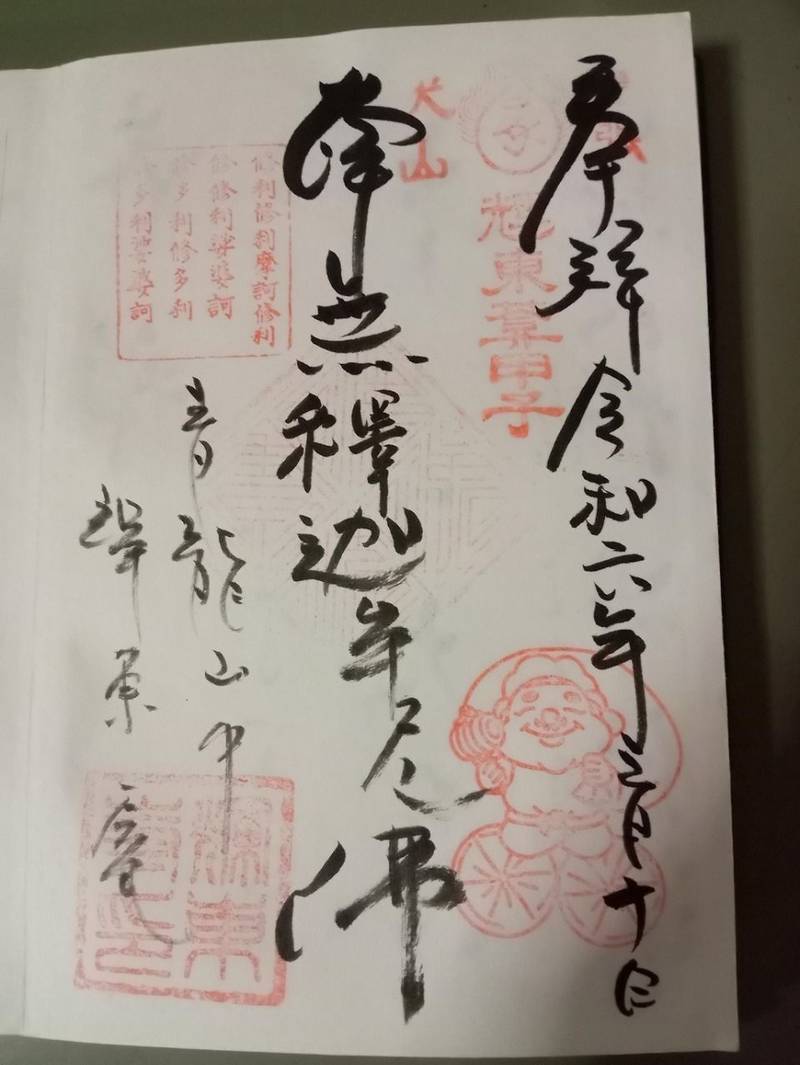 奉拝 令和六年三月十日
犬山
輝東菴甲子
南無釋迦牟尼佛
修利修利摩訶修利
修修利娑婆訶
修多利修多利
修多利娑婆訶
青龍山中
輝東庵